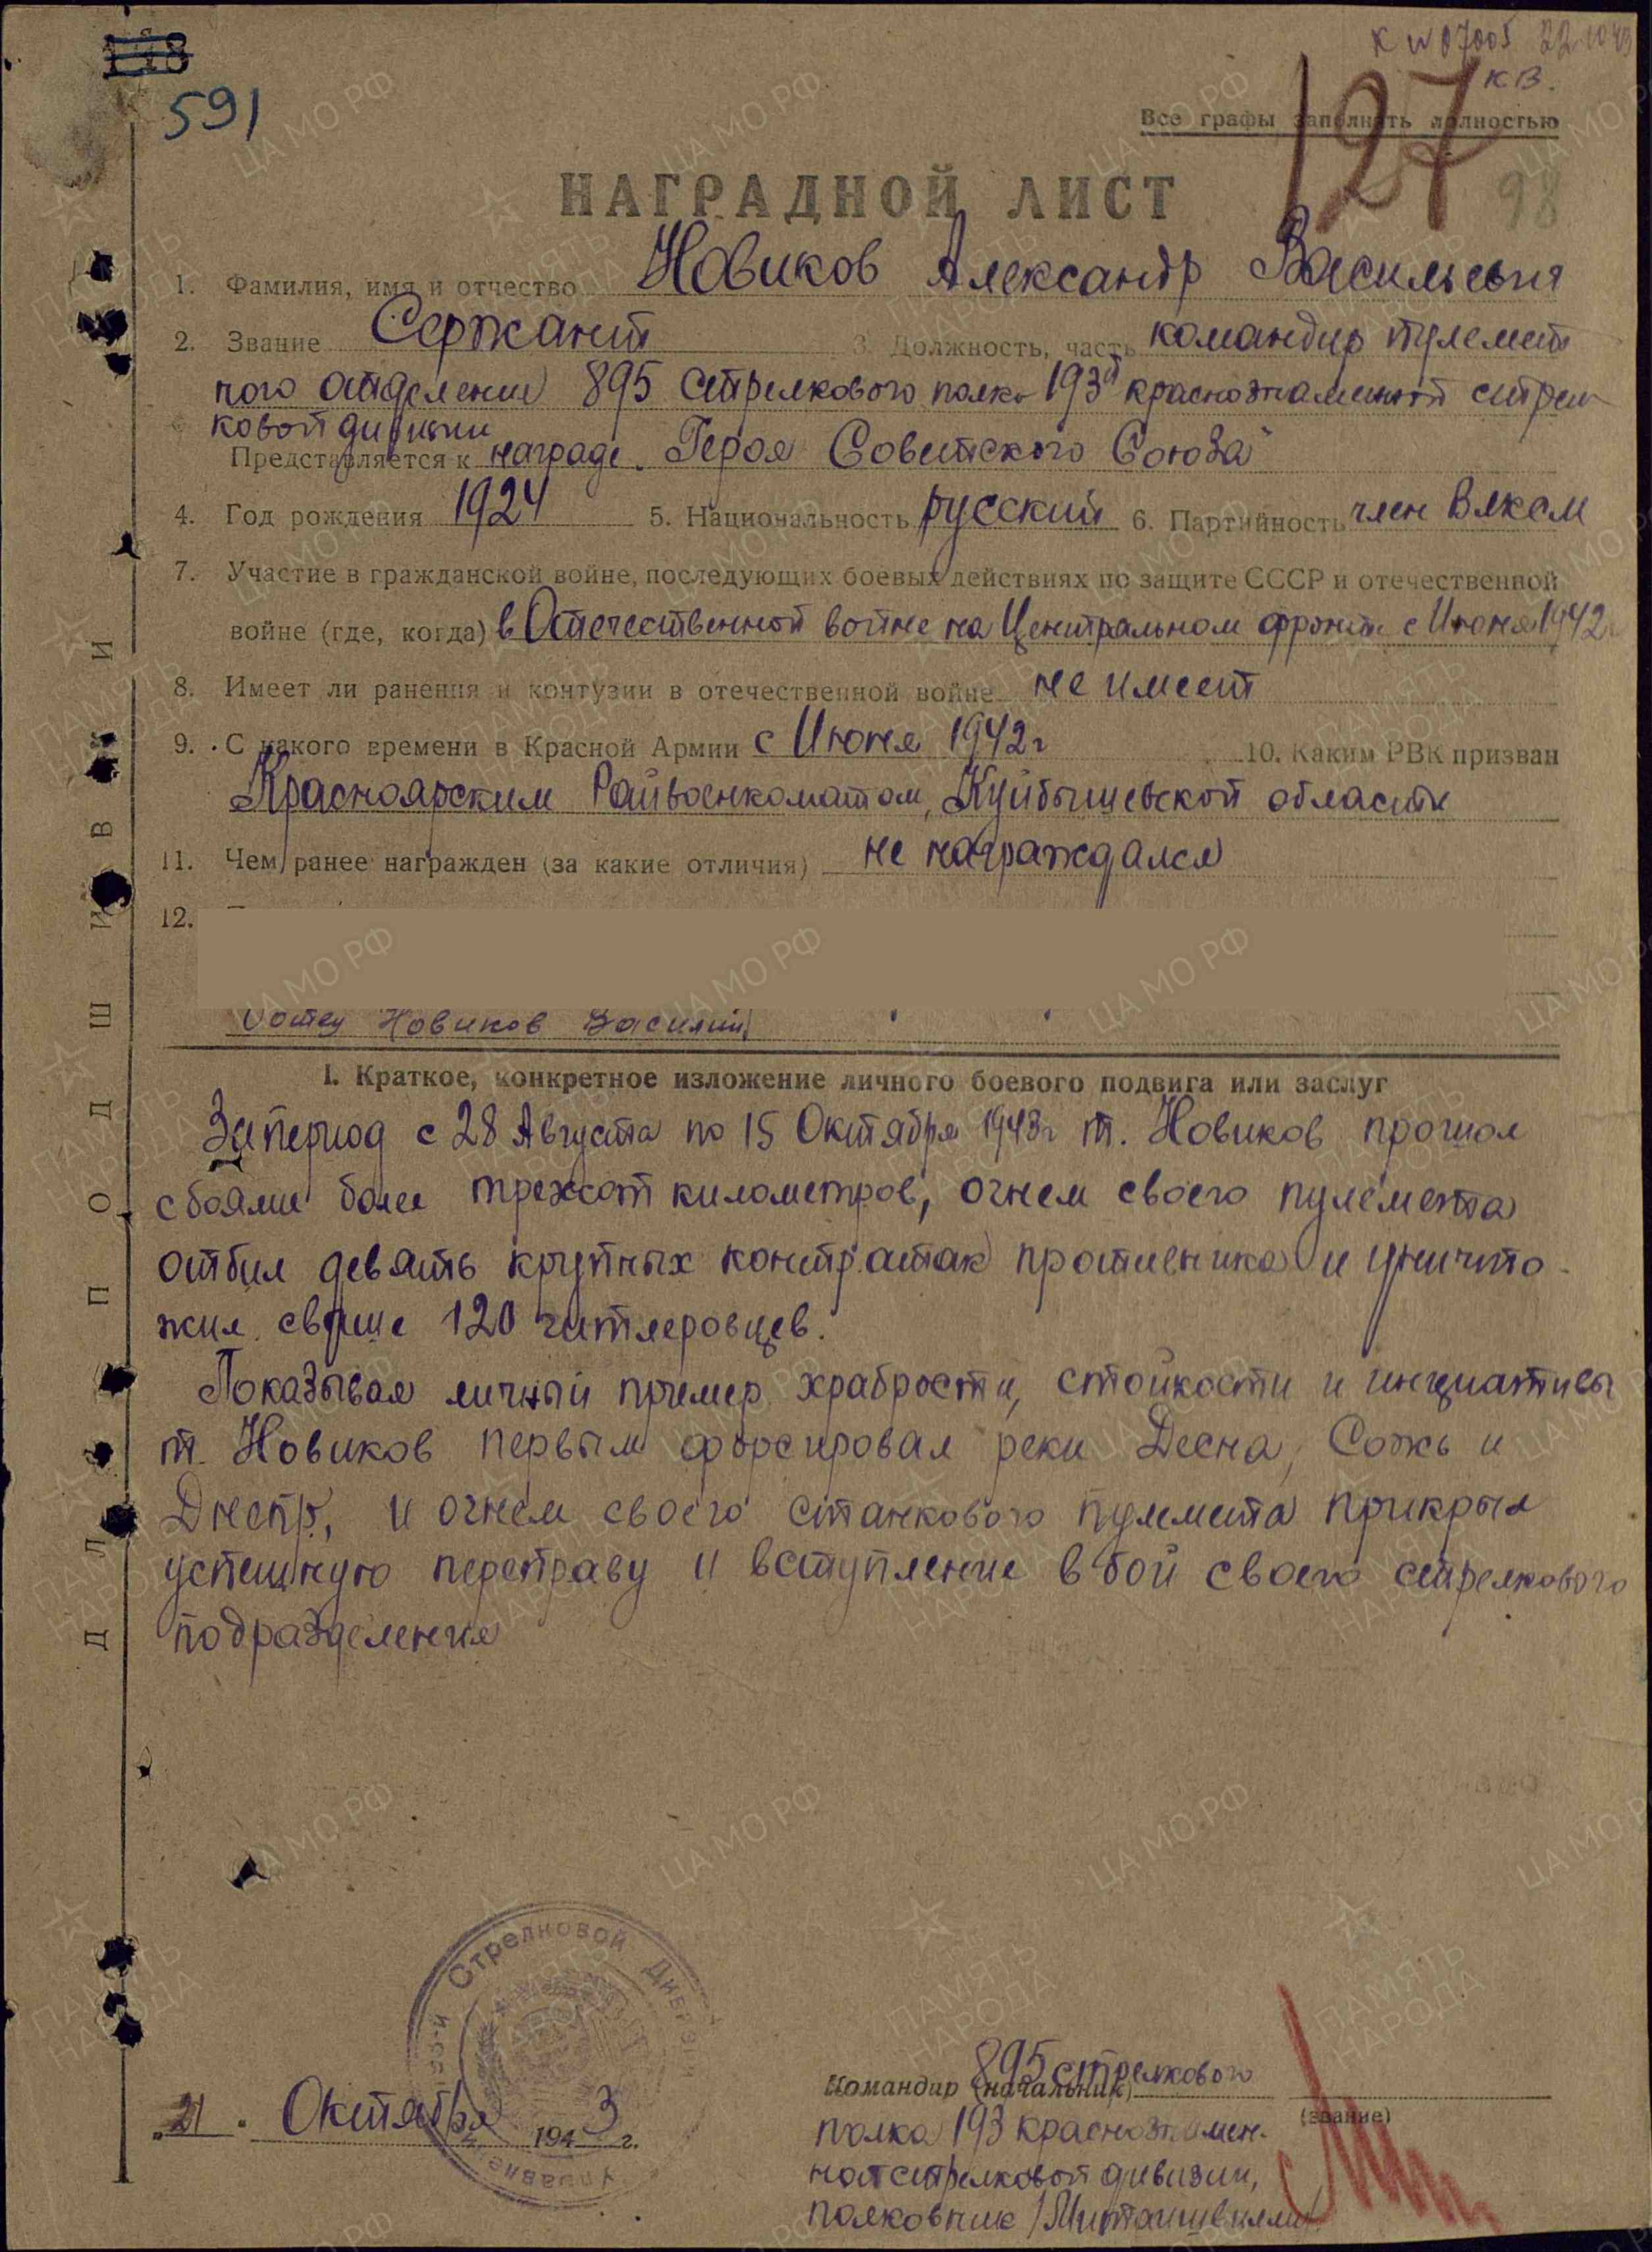 К №07005 22.10.43
КВ.
118
591
127
98
Все графы заполнять полностью
НАГРАДНОЙ ЛИСТ
1. Фамилия, имя и отчество Новиков Александр Васильевич
2. Звание Сержант 3. Должность, часть командир пулемет
ного отделения 895 стрелкового полка 193й краснознаменной стрел
ковой дивизии
Представляется к награде „Героя Советского Союза"
4. Год рождения 1924 5. Национальность русский 6. Партийность член ВЛКСМ
7. Участие в гражданской войне, последующих боевых действиях по защите СССР и отечественной
войне (где, когда) в Отечественной войне на Центральном фронте с Июня 1942г
8. Имеет ли ранения и контузии в отечественной войне не имеет
9. С какого времени в Красной Армии с Июня 1942г 10. Каким РВК призван
Красноярским Райвоенкоматом, Куйбышевской области
11. Чем ранее награжден (за какие отличия) не награждался
12.
отец Новиков Василий
I. Краткое, конкретное изложение личного боевого подвига или заслуг
За период с 28 Августа по 15 Октября 1943г т. Новиков прошол
с боями более трехсот километров, огнем своего пулемета
отбил девять крупных контратак противника и уничто-
жил свыше 120 гитлеровцев.
Показывая личный пример храбрости, стойкости и инциативы
т. Новиков первым форсировал реки Десна, Сожь и
Днепр, и огнем своего станкового пулемета прикрыл
успешную переправу и вступление в бой своего стрелкового
подразделения
Стрелковой Дивизии
Управление
„21" Октября 1943 г.
Командир (начальник) 895 стрелкового
(звание)
полка 193 краснознамен-
ной стрелковой дивизии,
полковник /
ДЛЯ ПОДШИВКИ
ЦАМО РФ
ПАМЯТЬ НАРОДА